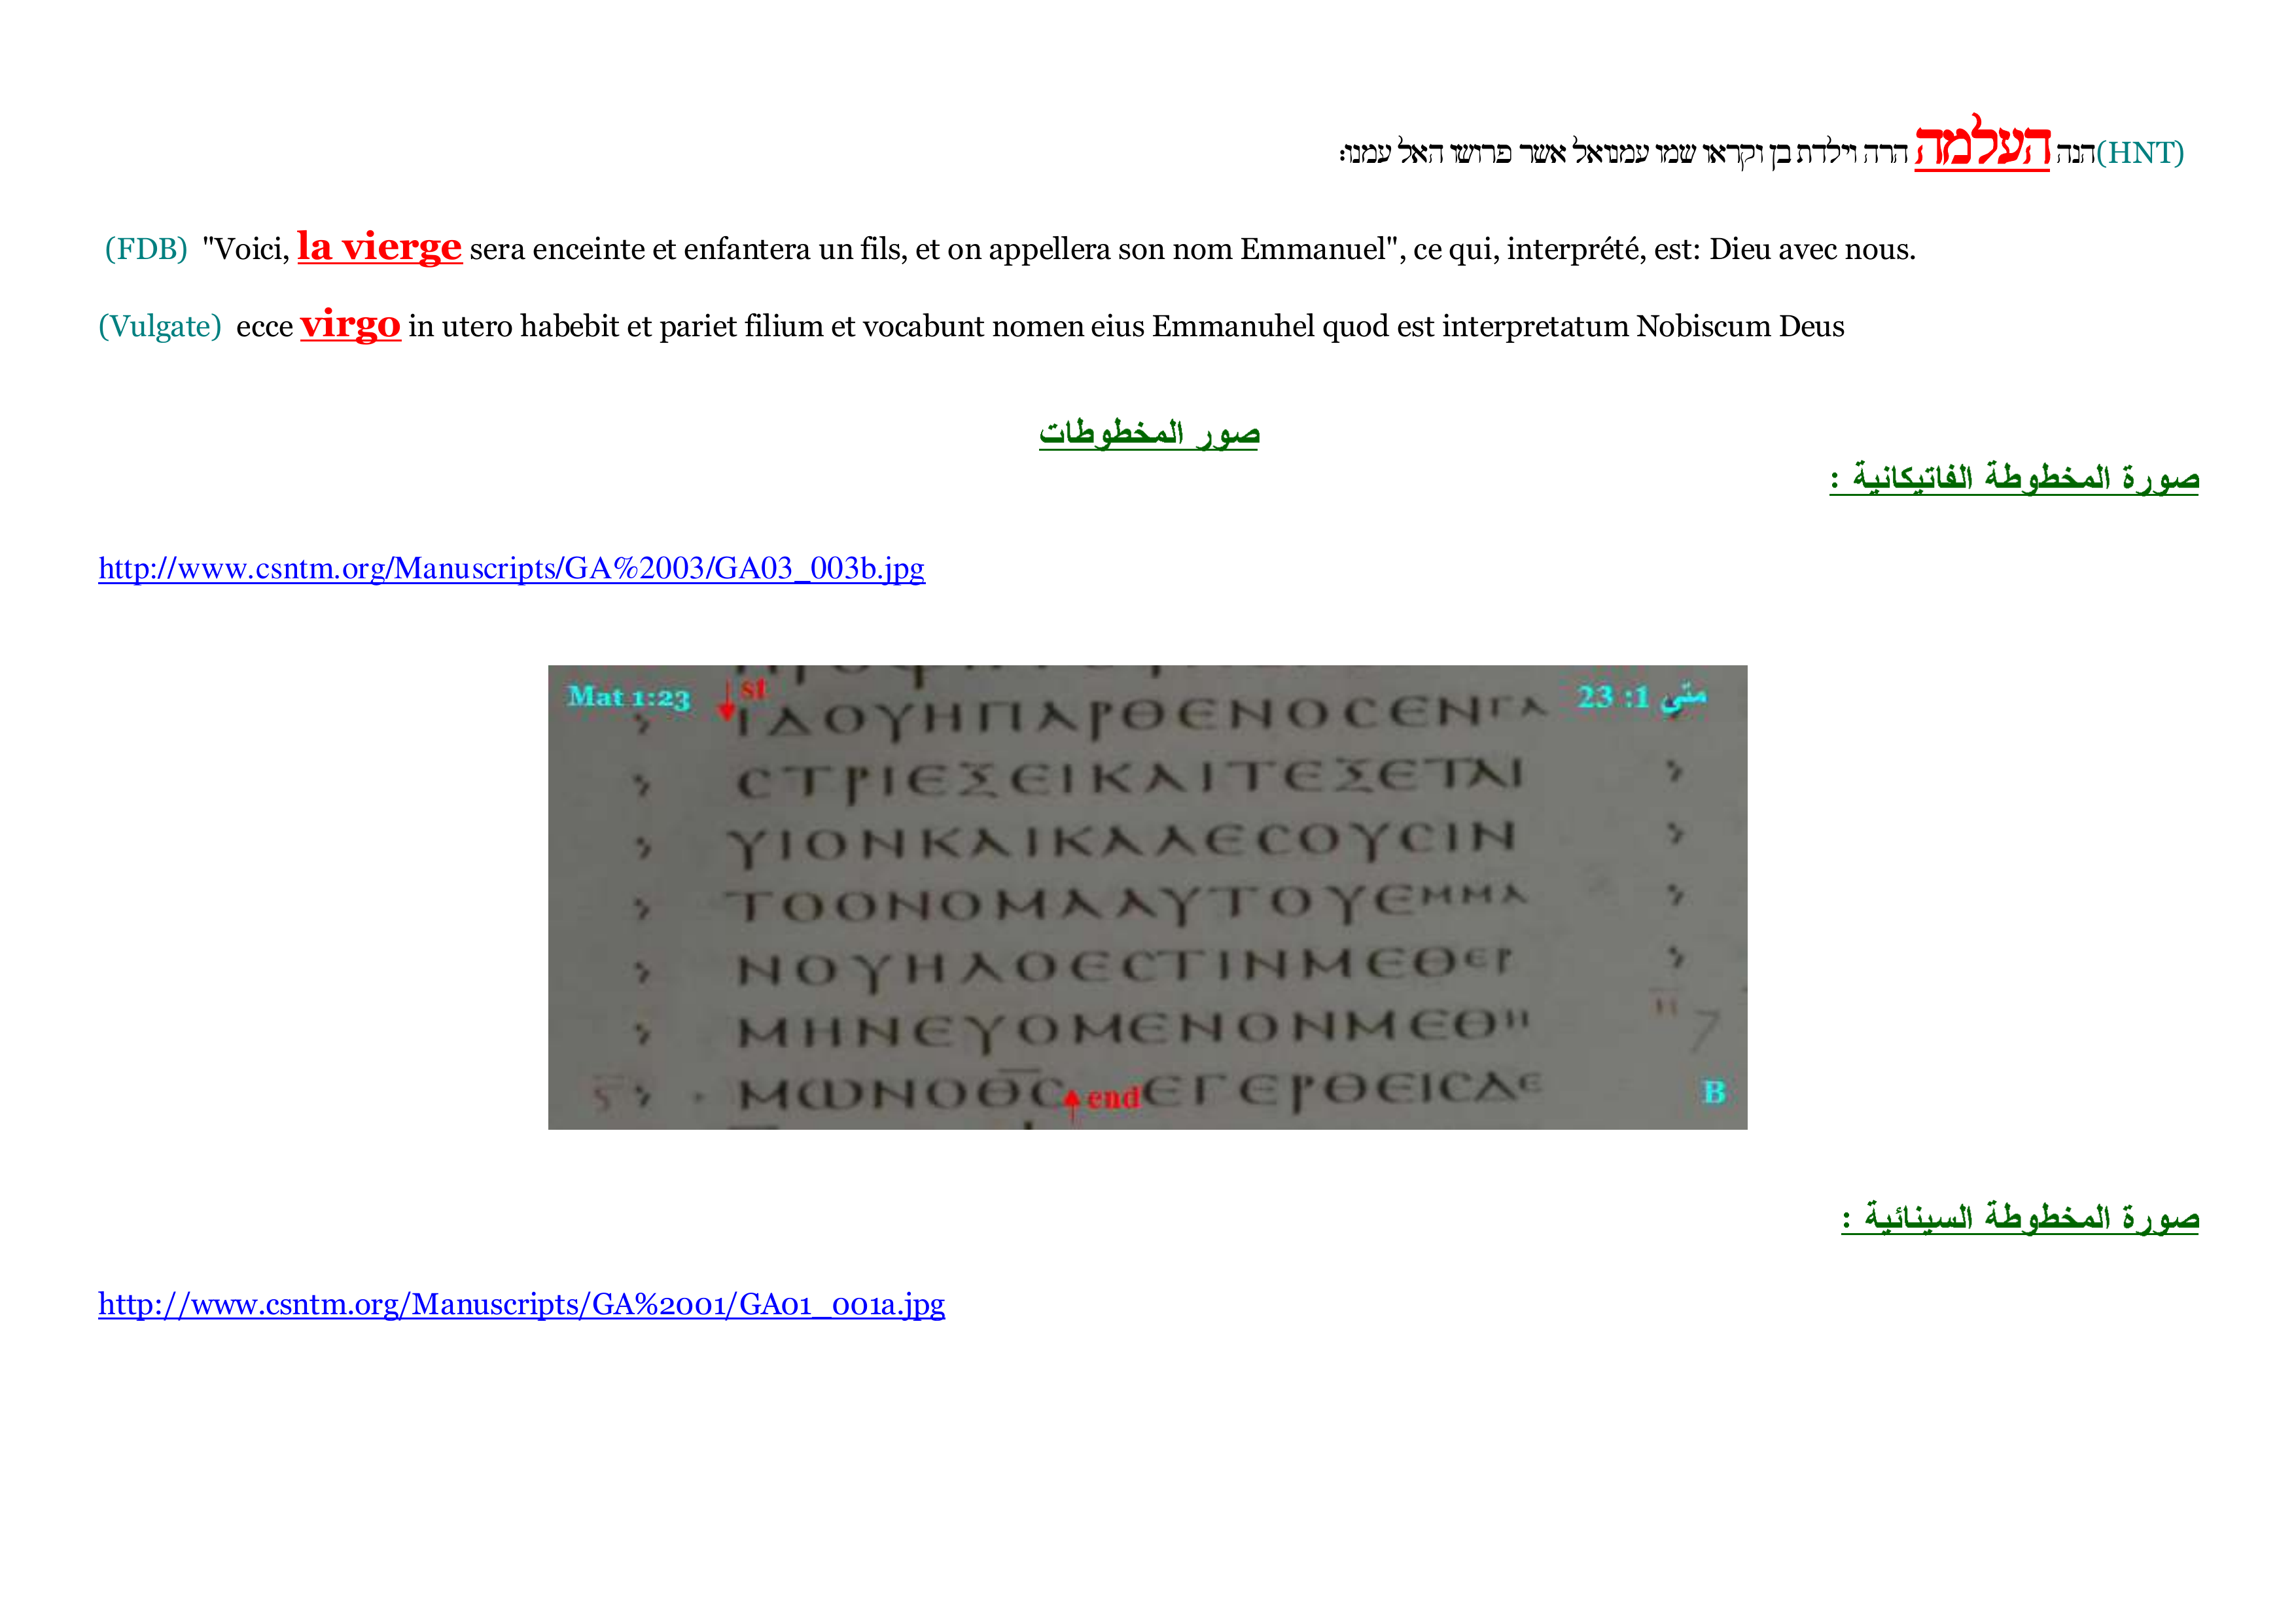 (HNT) הנה העלמה הרה וילדת בן וקראו שמו עמנואל אשר פרושו האל עמנו׃
(FDB) "Voici, la vierge sera enceinte et enfantera un fils, et on appellera son nom Emmanuel", ce qui, interprété, est: Dieu avec nous.
(Vulgate) ecce virgo in utero habebit et pariet filium et vocabunt nomen eius Emmanuhel quod est interpretatum Nobiscum Deus
صور المخطوطات
صورة المخطوطة الفاتيكانية :
http://www.csntm.org/Manuscripts/GA%2003/GA03_003b.jpg
Mat 1:23 st متى 1: 23
ΙΔΟΥΗΠΑΡΘΕΝΟCΕΝΓΑ
CΤΡΙΕΞΕΙΚΑΙΤΕΞΕΤΑΙ
ΥΙΟΝΚΑΙΚΑΛΕCΟΥCΙΝ
ΤΟΟΝΟΜΑΑΥΤΟΥΕΜΜΑ
ΝΟΥΗΛΟΕCΤΙΝΜΕΘΕΡ
ΜΗΝΕΥΟΜΕΝΟΝΜΕΘΗ
7
5 ΜΩΝΟΘ̅C̅ end ΕΓΕΡΘΕΙCΔΕ B
صورة المخطوطة السينائية :
http://www.csntm.org/Manuscripts/GA%2001/GA01_001a.jpg